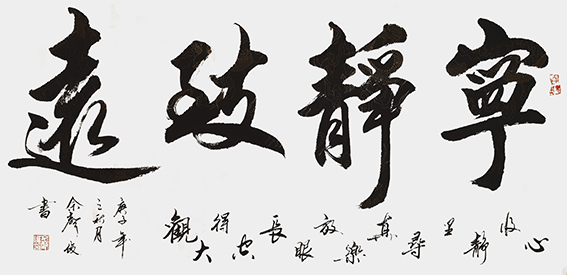 寧靜致遠
收心至靜尋真樂放眼長空得大觀
庚子年
三秋月
余
書